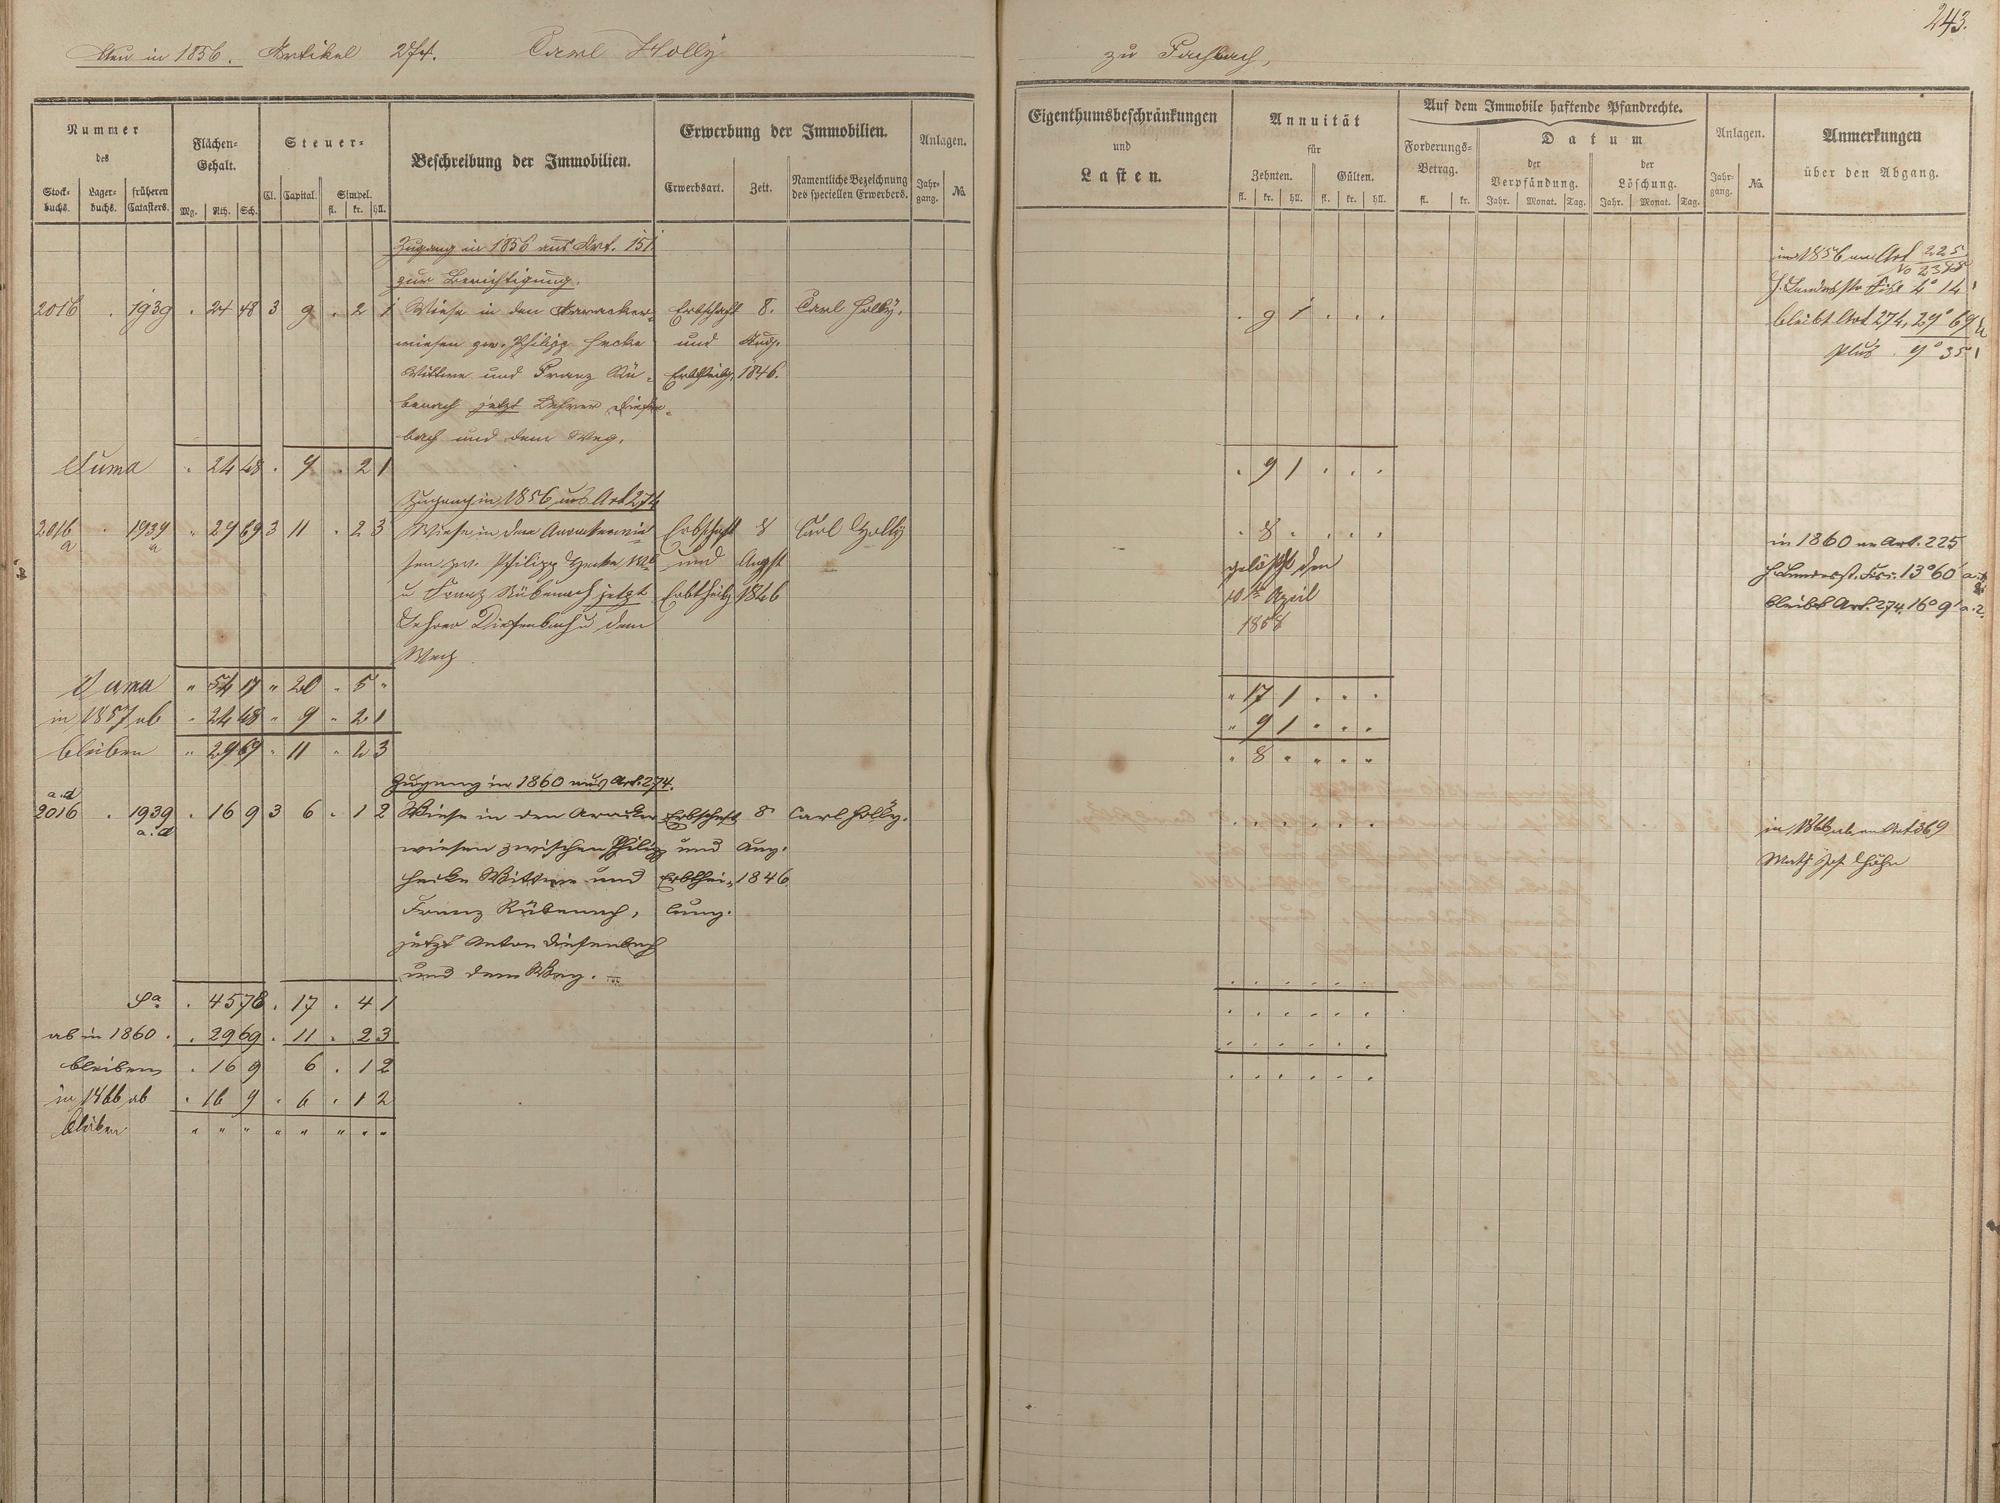 243.
Neu in 1856. Artikel 274. Carl Holly
zu Fachbach,
Nummer
des
Stock-
buchs.
Lager-
buchs.
früheren
Catasters.
Flächen-
Gehalt.
Mg. Rth. Sch.
Steuer-
Cl. Capital. Simpel.
fl. kr. hll.
Beschreibung der Immobilien.
Erwerbung der Immobilien.
Erwerbsart. Zeit. Namentliche Bezeichnung
des speciellen Erwerbers.
Anlagen.
Jahr-
gang. No.
Eigenthumsbeschränkungen
und
Lasten.
Annuität
für
Zehnten. Gülten.
fl. kr. hll. fl. kr. hll.
Auf dem Immobile haftende Pfandrechte.
Forderungs-
Betrag.
fl. kr.
Datum
der
Verpfändung.
Jahr. Monat. Tag.
der
Löschung.
Jahr. Monat. Tag.
Anlagen.
Jahr-
gang. No.
Anmerkungen
über den Abgang.
Zugang in 1856 aus Art. 151.
zur Berichtigung.
2016 . 1939 . 24 48 3 9 . 2 1 Wiese in den Aaracker- Erbschaft 8. Carl Holly. . 9 1 . . .
wiesen zw. Philipp Hecke und Aug.
Wittwe und Franz Rü- Erbtheilg. 1846.
benach jetzt Lehrer Diefen-
bach und dem Weg.
in 1856 an Art 225
No 2388
H. Landesstr. Fisc 4° 14'
bleibt Art 274, 29° 69'
plus . 9° 35'
Suma . 24 48 . 9 . 2 1 . 9 1 . . .
Zugang in 1856 aus Art 274
2016 a . 1939 a " 29 69 3 11 . 2 3 Wiese in den Aarackerwie- Erbschaft 8 Carl Holly . 8 . . . .
sen zw. Philipp Hecke Wb und Augst
u Franz Rübenach jetzt Erbtheilg 1846
Lehrer Diefenbach u dem
Weg
gelöscht den
10ten April
1858
in 1860 an Art. 225
H. Landesst. Fisc. 13° 60' a.
bleibt Art. 274 16° 9' a. 2.
Suma " 54 17 " 20 . 5 " " 17 1 . . .
in 1857 ab . 24 48 " 9 " 2 1 " 9 1 . . .
bleiben " 29 69 " 11 " 2 3 . 8 . . . .
Zugang in 1860 aus Art. 274.
2016 a.d . 1939 a.d . 16 9 3 6 . 1 2 Wiese in den Aaracker Erbschaft 8 Carl Holly. . . . . . .
wiesen zwischen Philipp und Aug.
Hecke Wittwe und Erbthei- 1846
Franz Rübenach, lung.
jetzt Anton Diefenbach
und dem Weg.
in 1866 ab an Art 369
Math Jos. Höhn
Sa. . 45 78 . 17 . 4 1 . . . . . .
ab in 1860 . . 29 69 . 11 . 2 3 . . . . . .
bleiben . 16 9 6 . 1 2 . . . . . .
in 1866 ab . 16 9 . 6 . 1 2
bleiben " " " " " " " "